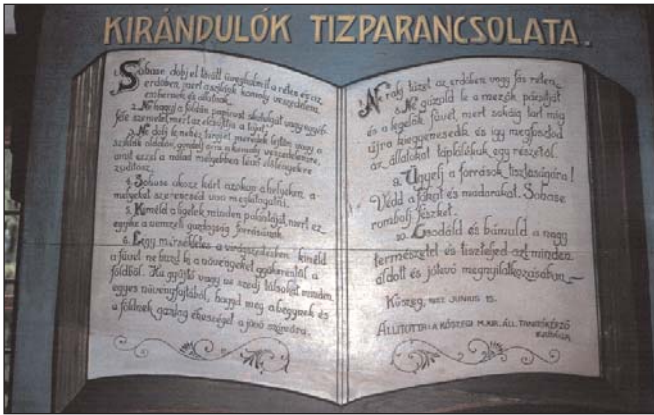 KIRÁNDULÓK TIZPARANCSOLATA.
1. Sohase dobj el törött üvegholmit a rétes és az
erdőben, mert aszfalok komoly veszedelem
embernek és állatnak.
2. Ne hagyj a földön papirost, skatulyát vagy egyéb
féle szemetet, mert az elcsúfitja a tájat.
3. Ne dobj le nehéz tárgyat meredek lejtőn vagy a
sziklák oldalán, gondolj arra a komoly veszedelemre,
amit ezzel a nálad mélyebben lévő élőlényekre
zúditasz.
4. Sohase okozz kárt azokon a helyeken, a-
melyeket szerencséd van meglátogatni.
5. Kiméld a ligetek minden palántáját, mert ez
egyike a nemzeti gazdagság forrásának.
6. Légy mérsékletes a virágszedésben, kiméld
a füvet, ne huzd ki a növényeket gyökerestől a
földből. Ha gyűjtő vagy, ne szedj túlsokat minden
egyes növényfajtából, hagyd meg a hegynek és
a földnek gazdag ékességét a jövő számára.
7. Ne rakj tüzet az erdőben vagy fás réten.
8. Ne gúzold le a mezők pázsitját
és a legelők füvét, mert soká tart mig
újra kiegyenesedik és igy megfosztod
az állatokat táplálékuk egy részétől.
9. Ügyelj a források tisztaságára!
Védd a fákat és madarakat. Sohase
rombolj fészket.
10. Csodáld és bámuld a nagy
természetet és tiszteljed azt minden
áldott és jótevő megnyilatkozásában.—
Kőszeg, JUNIUS 15.
ÁLLITOTTA A KŐSZEGI M. KIR. ÁLL. TANITÓKÉPZŐ